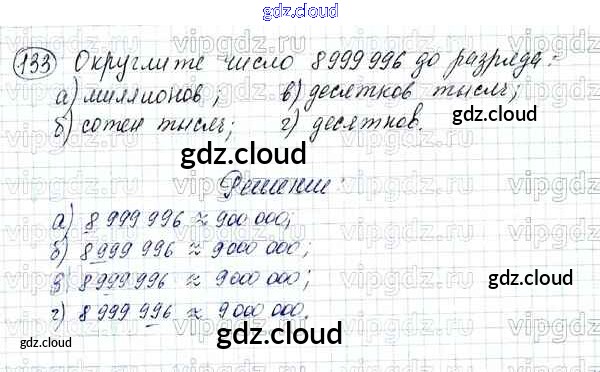 gdz.cloud
133 Округлите число 8 999 996 до разряда:
а) миллионов; в) десятков тысяч;
б) сотен тысяч; г) десятков.
gdz.cloud
Решение:
а) 8 999 996 ≈ 900 000;
б) 8 999 996 ≈ 9 000 000;
в) 8 999 996 ≈ 9 000 000;
gdz.cloud
г) 8 999 996 ≈ 9 000 000.
gdz.cloud
gdz.cloud
gdz.cloud